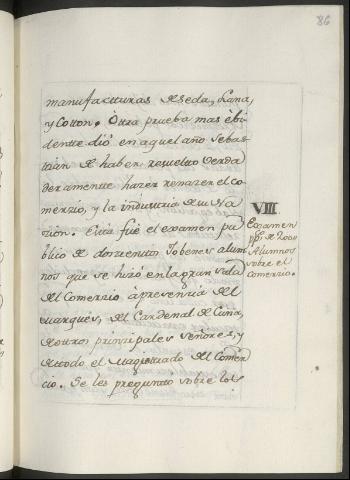 86
manufacturas de seda, Lana,
y Cotton. Otra prueba mas èbi
dente diò en aquel año Sebas-
tian de haber resuelto verda
deramente hazer renazer el co
merzio, y la industria de su Na
zion. Esta fué el examen pu
blico de doszentos Jobenes alum
nos que se hizò en la gran sala
del Comerzio à presenzia del
Marques, del Cardenal de Cuna,
de otros prinzipales señores, y
de todo el Magistrado del Comer
cio. Se les preguntò sobre los
VIII
Examen
pp.co de 200
Alumnos
sobre el
comerzio.